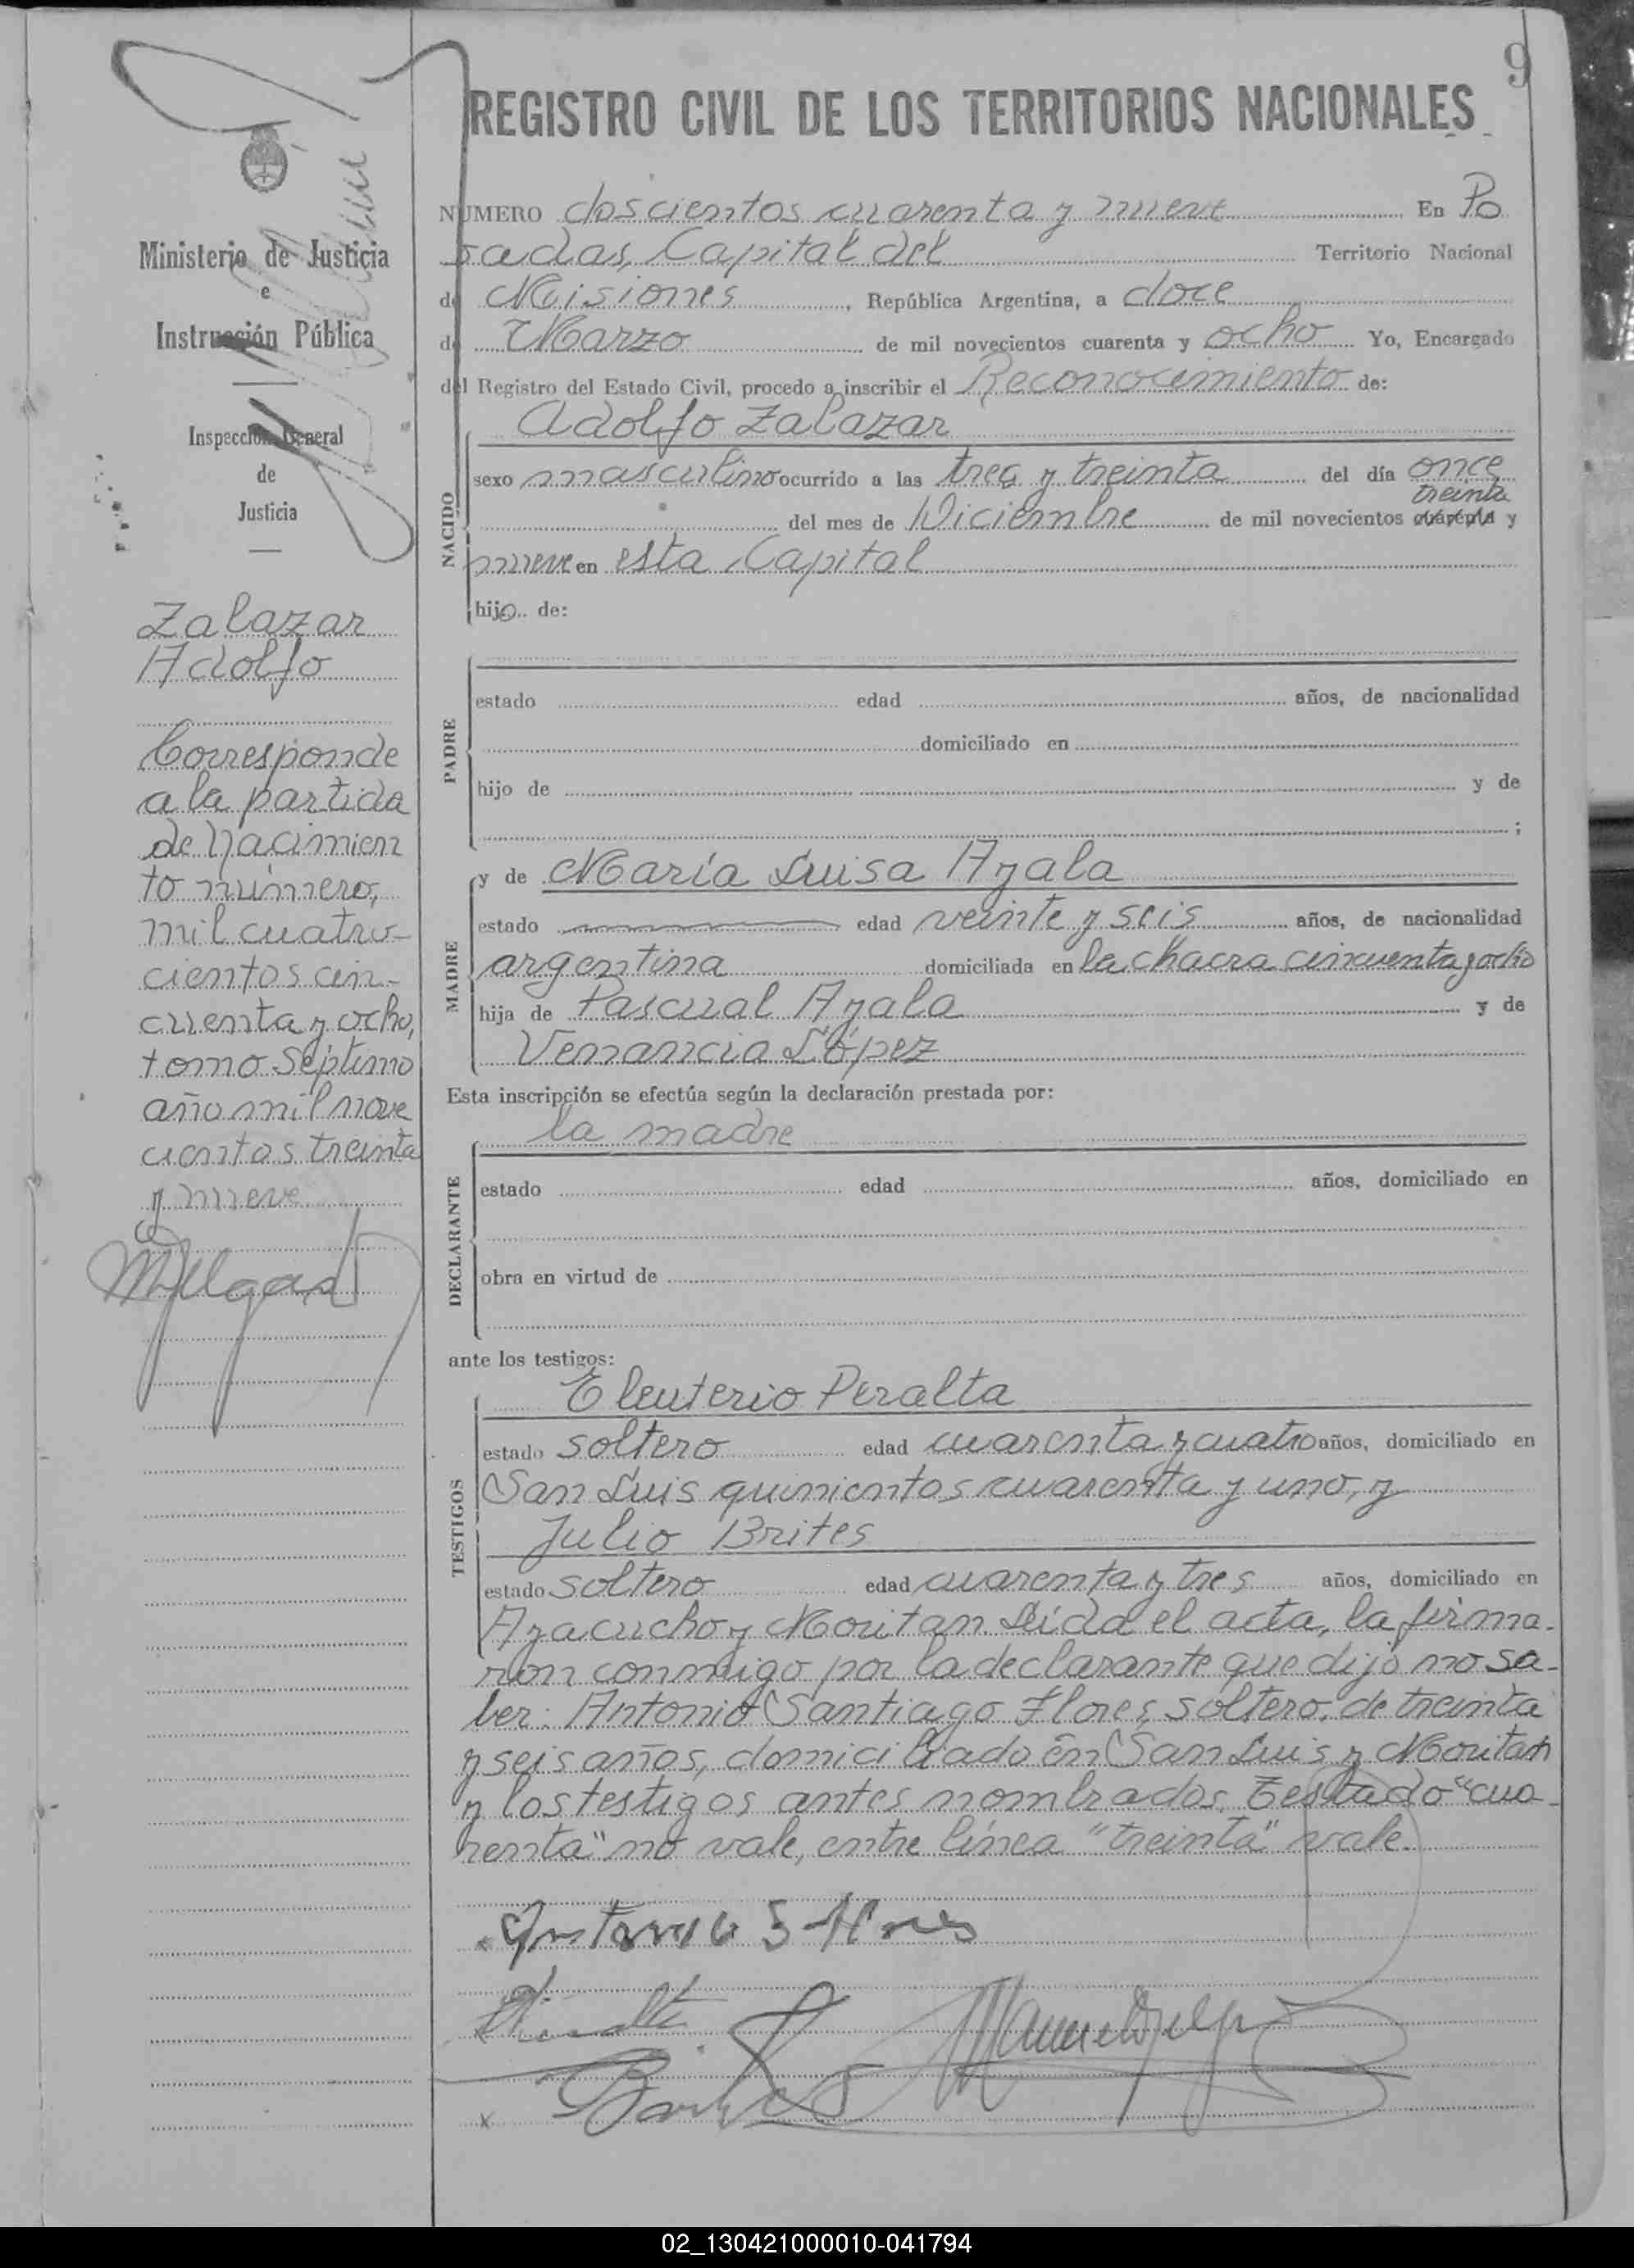 9
REGISTRO CIVIL DE LOS TERRITORIOS NACIONALES
Ministerio de Justicia
e
Instrucción Pública
Inspección General
de
Justicia
Zalazar
Adolfo
Corresponde
a la partida
de Nacimien
to número,
mil cuatro-
cientos cin-
cuenta y ocho,
tomo Séptimo
año mil nove
cientos treinta
y nueve
NUMERO doscientos cuarenta y nueve En Po
sadas, Capital del Territorio Nacional
de Misiones, República Argentina, a doce
de Marzo de mil novecientos cuarenta y ocho Yo, Encargado
del Registro del Estado Civil, procedo a inscribir el Reconocimiento de:
Adolfo Zalazar
NACIDO
sexo masculino ocurrido a las tres y treinta del día once
treinta
del mes de Diciembre de mil novecientos cuarenta y
nueve en esta Capital
hijo de:
PADRE
estado edad años, de nacionalidad
domiciliado en
hijo de y de
;
MADRE
y de María Luisa Ayala
estado edad veinte y seis años, de nacionalidad
argentina domiciliada en la chacra cincuenta y ocho
hija de Pascual Ayala y de
Venancia López
Esta inscripción se efectúa según la declaración prestada por:
la madre
DECLARANTE
estado edad años, domiciliado en
obra en virtud de
ante los testigos:
TESTIGOS
Eleuterio Peralta
estado soltero edad cuarenta y cuatro años, domiciliado en
San Luis quinientos cuarenta y uno, y
Julio Brites
estado soltero edad cuarenta y tres años, domiciliado en
Ayacucho y Moritan Leída el acta, la firma-
ron conmigo por la declarante que dijo no sa-
ber: Antonio Santiago Flores, soltero, de treinta
y seis años, domiciliado en San Luis y Moritan
y los testigos antes nombrados. Testado "cua-
renta" no vale, entre línea "treinta" vale.
Antonio S Flores
02_130421000010-041794